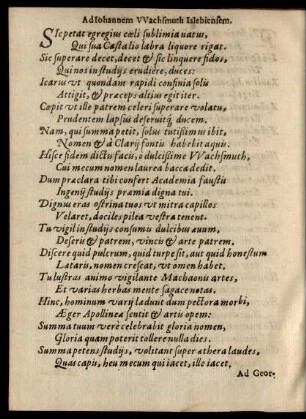 Ad Iohannem VVachsmuth Islebiensem.
SIc petat egregius cœli sublimia vatus,
Qui sua Castalio labra liquore rigat.
Sic superare decet, decet & sic linquere fidos,
Qui nos in studijs erudiêre, duces:
Icarus vt quondam rapidi confinia solis
Attigit, & præceps alius egit iter.
Cœpit vt ille patrem celeri superare volatu,
Prudentem lapsus deseruitq; ducem.
Nam, qui summa petit, solus tutissimus ibit,
Nomen & à Clarij fontis habebit aquis.
Hisce fidem dictis facis, ô dulcissime VVachsmuth,
Cui mecum nomen laurea bacca dedit.
Dum præclara tibi confert Academia faustis
Ingenij studijs præmia digna tui.
Dignus eras ostrina tuos vt mitra capillos
Velaret, dociles pilea vestra tenent.
Tu vigil in studijs consumis dulcibus æuum,
Deseris & patrem, vincis & arte patrem.
Discere quid pulcrum, quid turpe sit, aut quid honestum
Lætaris, nomen crescat, vt omen habet.
Tu lustras animo vigilante Machaonis artes,
Et varias herbas mente sagace notas.
Hinc, hominum varij lædunt dum pectora morbi,
Æger Apollinea sentit & artis opem:
Summa tuum verè celebrabit gloria nomen,
Gloria quam poterit tollere nulla dies.
Summa petens studijs, volitant super æthera laudes,
Quas capis, heu mecum qui iacet, ille iacet.
Ad Geor-